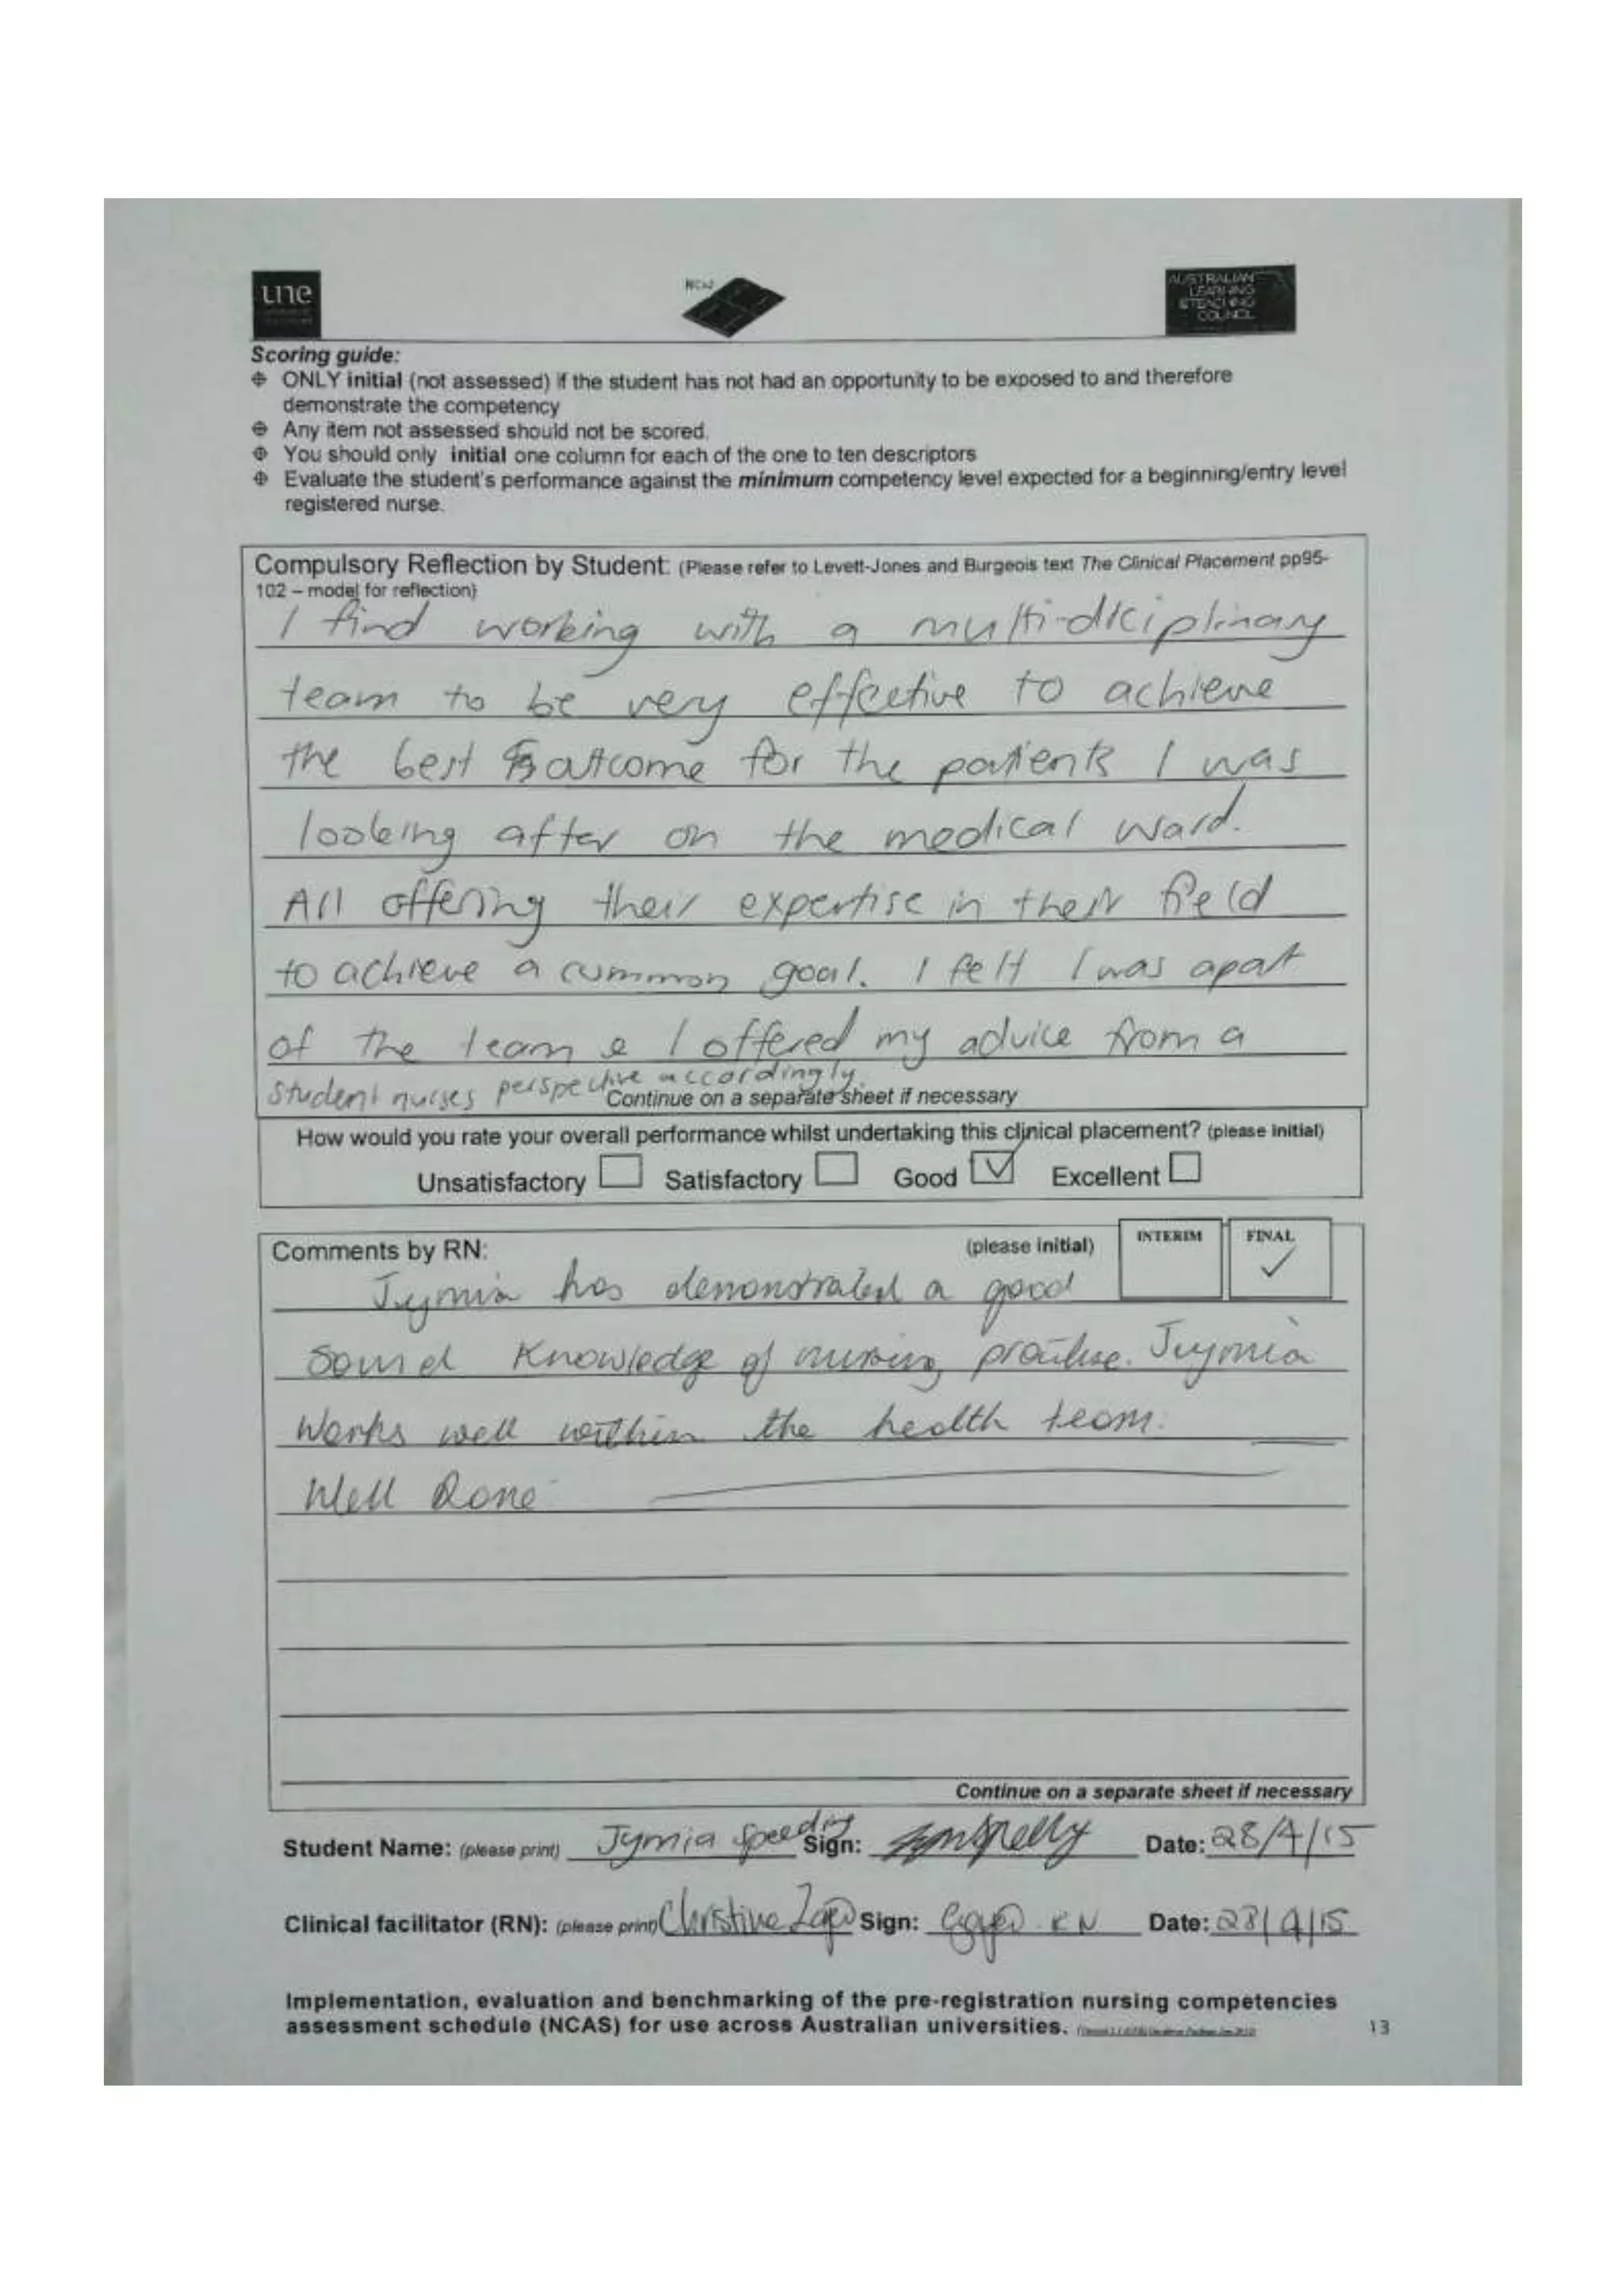 une
NCAS
AUSTRALIAN
LEARNING
&TEACHING
COUNCIL
Scoring guide:
ONLY initial (not assessed) if the student has not had an opportunity to be exposed to and therefore
demonstrate the competency
Any item not assessed should not be scored.
You should only initial one column for each of the one to ten descriptors
Evaluate the student's performance against the minimum competency level expected for a beginning/entry level
registered nurse.
Compulsory Reflection by Student: (Please refer to Levett-Jones and Burgeois text The Clinical Placement pp95-
102 – model for reflection)
I find working with a multi-diciplinary
team to be very effective to achieve
the best outcome for the patients I was
looking after on the medical ward.
All offering their expertise in their field
to achieve a common goal. I felt I was apart
of the team & I offered my advice from a
student nurses perspective accordingly.
Continue on a separate sheet if necessary
How would you rate your overall performance whilst undertaking this clinical placement? (please initial)
Unsatisfactory Satisfactory Good Excellent
Comments by RN: (please initial) INTERIM FINAL
Jymia has demonstrated a good
sound Knowledge of nursing practise. Jymia
works well within the health team.
Well Done
Continue on a separate sheet if necessary
Student Name: (please print) Jymia Speeding Sign: Date: 28/4/15
Clinical facilitator (RN): (please print) Christine Sign: RN Date: 28/4/15
Implementation, evaluation and benchmarking of the pre-registration nursing competencies
assessment schedule (NCAS) for use across Australian universities.
13